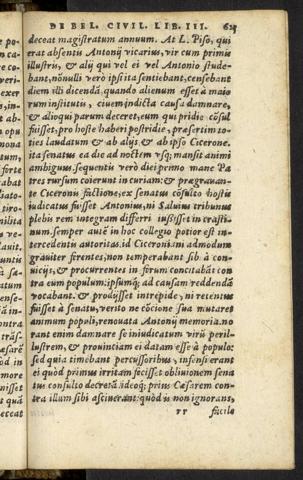 DE BEL. CIVIL. LIB. III.
deceat magistratum annuum. At L. Piso, qui
erat absentis Antonij vicarius, vir cum primis
illustris, & alij qui vel ei vel Antonio stude-
bant, nōnulli verò ipsi ita sentiebant, censebant
diem illi dicendā. quando alienum esset à maio
rum institutis, ciuem indicta causa damnare,
& alioqui parum deceret, eum qui pridie cōsul
fuisset, pro hoste haberi postridie, præsertim to-
ties laudatum & ab alijs & ab ipso Cicerone.
ita senatus ea die ad noctem vsq; mansit animi
ambiguus. sequentis verò diei primo mane Pa
tres rursum coierunt in curiam: & prægrauan-
te Ciceronis factione, ex senatus cōsulto hostis
iudicatus fuisset Antonius, ni Saluius tribunus
plebis rem integram differri iussisset in crasti-
num. semper autē in hoc collegio potior est in-
tercedentis autoritas. id Ciceroniani admodum
grauiter ferentes, non temperabant sib. à con-
uicijs, & procurrentes in forum concitabāt con
tra eum populum: ipsumq; ad causam reddendā
vocabant. & prodijsset intrepide, ni retentus
fuisset à senatu, verito ne cōcione sua mutaret
animum populi, renouata Antonij memoria. no
rant enim damnare se iniudicatum virū peril-
lustrem, & prouinciam ei datam esse à populo:
sed quia timebant percussoribus, infensi erant
ei quòd primus irritam fecisset obliuionem sena
tus consulto decretā. ideoq; prius Cæsarem con-
tra illum sibi asciuerant: quòd is non ignorans,
rr facile